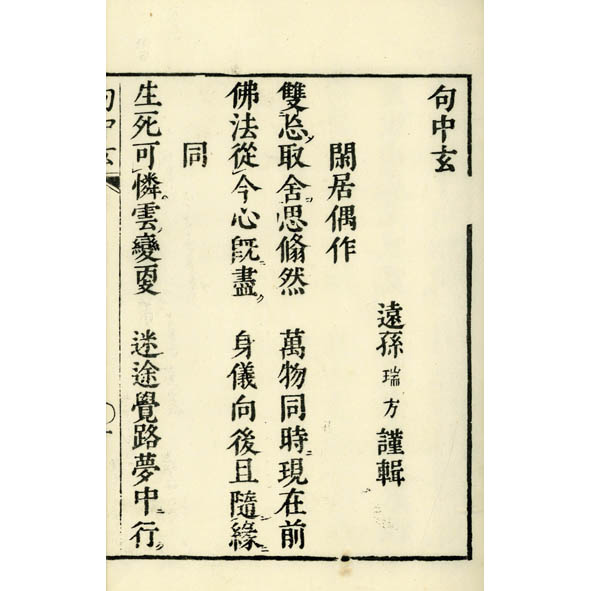 句中玄
遠孫瑞方謹輯
閑居偶作
雙忘取舍思翛然　萬物同時現在前
佛法從今心既盡　身儀向後且隨緣
同
生死可憐雲變更　迷途覺路夢中行
句中玄